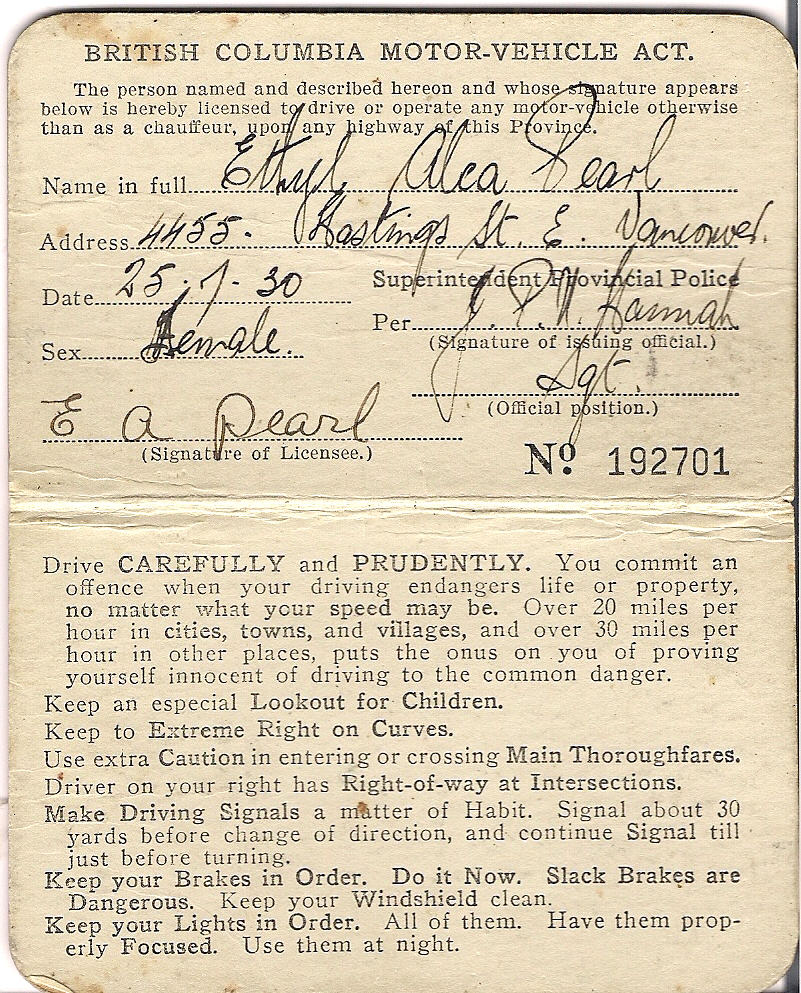 BRITISH COLUMBIA MOTOR-VEHICLE ACT.
The person named and described hereon and whose signature appears
below is hereby licensed to drive or operate any motor-vehicle otherwise
than as a chauffeur, upon any highway of this Province.
Name in full Ethyl Alea Pearl
Address 4455. Hastings St. E. Vancouver.
Date 25.7.30
Superintendent Provincial Police
Per J. P. W. Hannah
(Signature of issuing official.)
Sex Female.
Sgt.
(Official position.)
E A Pearl
(Signature of Licensee.)
No. 192701
Drive CAREFULLY and PRUDENTLY. You commit an
offence when your driving endangers life or property,
no matter what your speed may be. Over 20 miles per
hour in cities, towns, and villages, and over 30 miles per
hour in other places, puts the onus on you of proving
yourself innocent of driving to the common danger.
Keep an especial Lookout for Children.
Keep to Extreme Right on Curves.
Use extra Caution in entering or crossing Main Thoroughfares.
Driver on your right has Right-of-way at Intersections.
Make Driving Signals a matter of Habit. Signal about 30
yards before change of direction, and continue Signal till
just before turning.
Keep your Brakes in Order. Do it Now. Slack Brakes are
Dangerous. Keep your Windshield clean.
Keep your Lights in Order. All of them. Have them prop-
erly Focused. Use them at night.